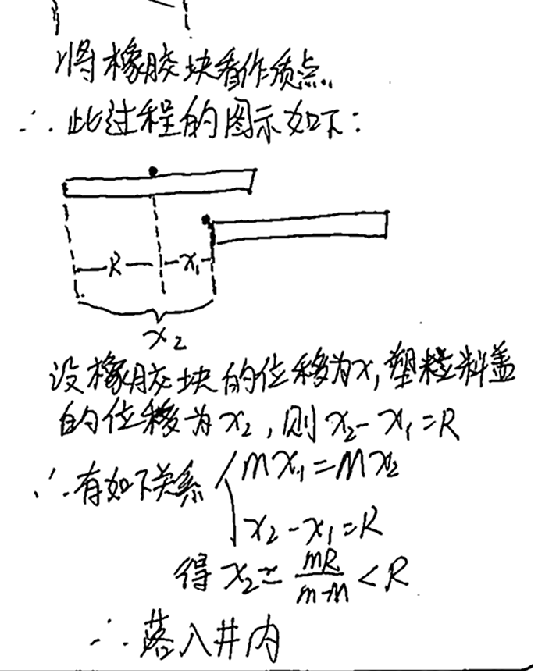 将橡胶块看作质点.
∴ 此过程的图示如下:
R x₁
x₂
设橡胶块的位移为x₁塑料盖
的位移为x₂,则x₂-x₁=R
∴有如下关系 { mx₁=Mx₂
x₂-x₁=R
得 x₂= mR/(m-M) < R
∴ 落入井内